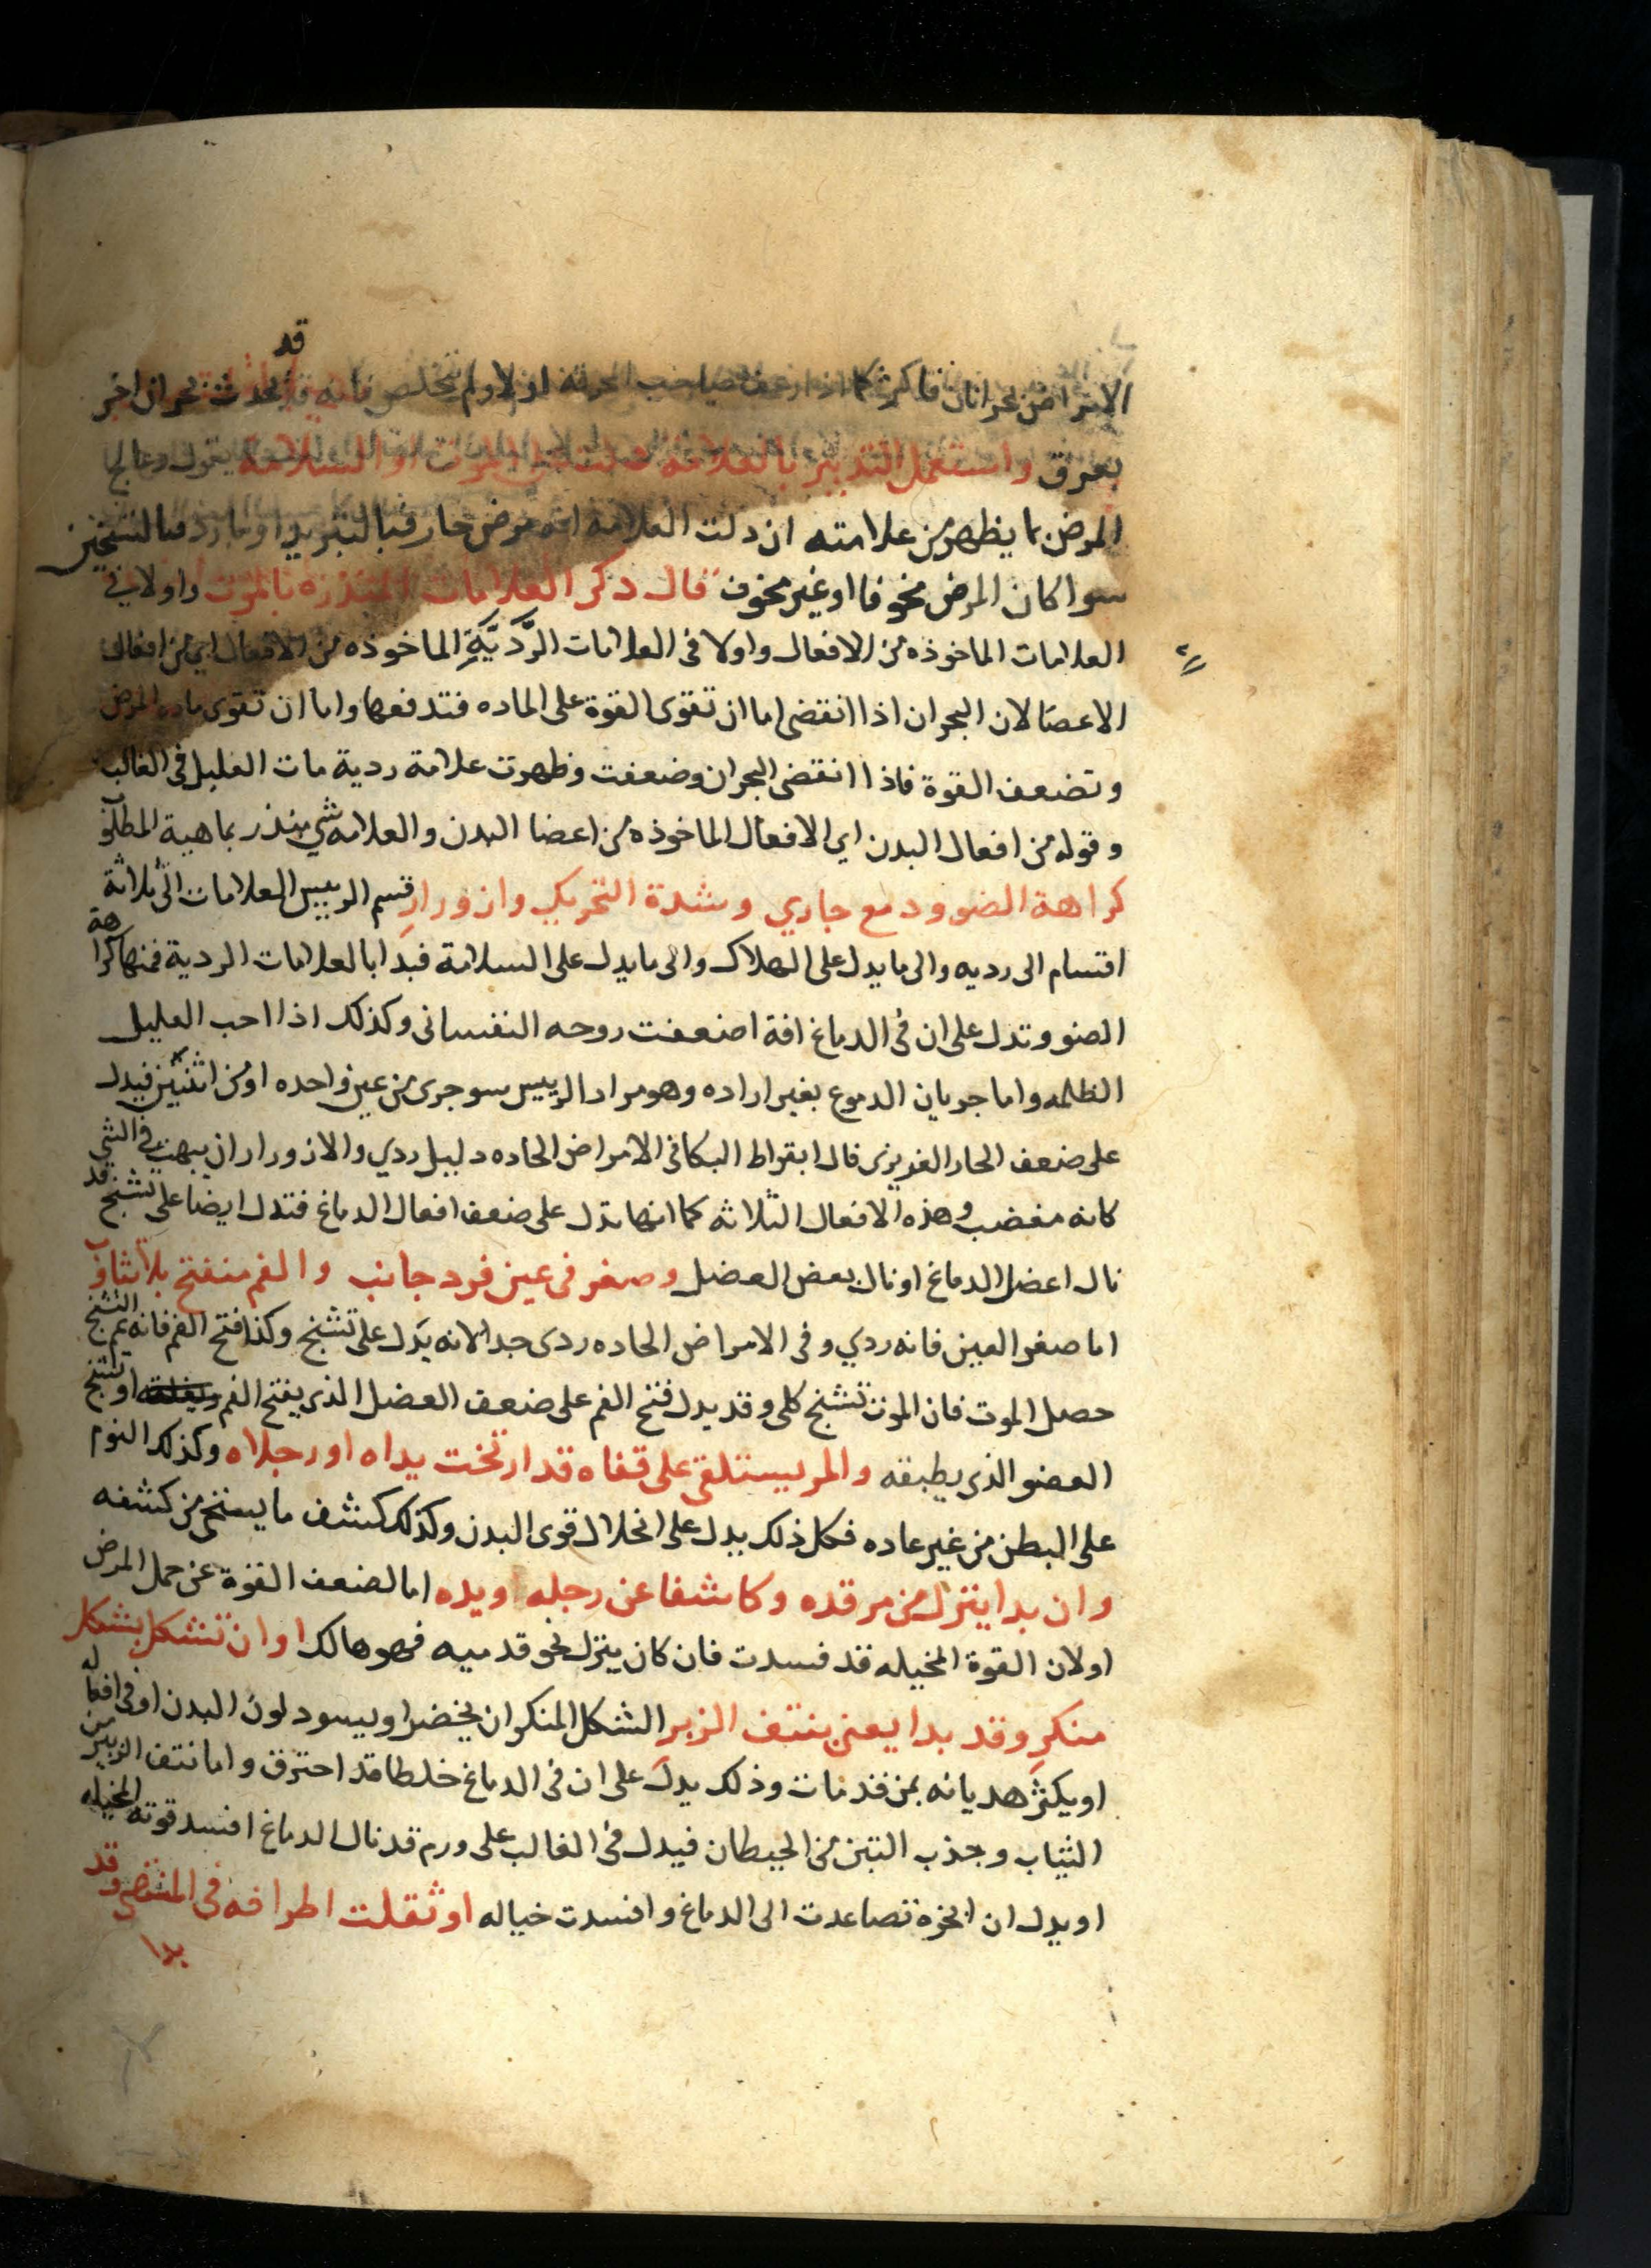 قد
الامراض بحرانان فاكثر كما اذا رعف صاحب المحرقة اولا ولم يتخلص فانه قد يحدث بحران اخر
بعرق واستعمل التدبير بالعلامة الموت او السلامة يقول وعالج
المرض بما يظهر من علامته ان دلت العلامة انه مرض حار فبالتبريد او بارد فبالتسخين
سوا كان المرض مخوفا او غير مخوف قال ذكر العلامات المنذرة بالموت واولا في
العلامات الماخوذه من الافعال واولا فى العلامات الرَّديَّةِ الماخوذه من الافعال اي من افعال
الاعضا لان البحران اذا انقضى اما ان تقوى القوة على الماده فتدفعها واما ان تقوى ماده المرض
وتضعف القوة فاذا انقضى البحران وضعفت وظهرت علامة ردية مات العليل فى الغالب
وقوله من افعال البدن اي الافعال الماخوذه من اعضا البدن والعلامه شي منذر بماهية المطلوب
كراهة الضوو دمع جاري وشدة التحريك وازورارِ قسم الرييس العلامات الى ثلاثة
اقسام الى رديه والى ما يدل على الهلاك والى ما يدل على السلامة فبدا بالعلامات الردية فمنها كراهة
الضو وتدل على ان فى الدماغ افة اضعفت روحه النفسانى وكذلك اذا احب العليل
الظلمه واما جريان الدموع بغير اراده وهو مراد الرييس سوجرى من عين واحده او من اثنين فيدل
على ضعف الحار الغريزى قال ابقراط البكا فى الامراض الحاده دليل ردي والازورار ان يبهت في الشي
كانه مغضب وهذه الافعال الثلاثه كما انها تدل على ضعف افعال الدماغ فتدل ايضا على تشنج قد
نال اعضل الدماغ او نال بعض العضل وصغر فى عين فرد جانب والفم منفتح بلا تثاوب
اما صغر العين فانه ردي وفى الامراض الحاده ردى جدا لانه يدل على تشنج وكذا فتح الفم فانه عم التشنج
حصل الموت فان الموت تشنج كلى وقد يدل فتح الفم على ضعف العضل الذى يفتح الفم او تشنج
العضو الذى يطبقه والمر يستلقى على قفاه قد ارتخت يداه او رجلاه وكذلك النوم
على البطن من غير عاده فكل ذلك يدل على انحلال قوى البدن وكذلك كشف ما يستحى من كشفه
وان بدا ينزل من مرقده وكاشفا عن رجله او يده اما لضعف القوة عن حمل المرض
او لان القوة المخيله قد فسدت فان كان ينزل نحو قدميه فهو هالك او ان تشكل بشكل
منكرِ وقد بدا يعنى بنتف الزبر الشكل المنكر ان يخضر او يسود لون البدن او فى افعاله
او يكثر هديانه بمن قد مات وذلك يدل على ان فى الدماغ خلطا قد احترق واما نتف الزبير من
الثياب وجذب التبن من الحيطان فيدل فى الغالب على ورم قد نال الدماغ افسد قوته المخيله
او يدل ان ابخره تصاعدت الى الدماغ وافسدت خياله او ثقلت اطرافه فى المنتهى وقد
بدا